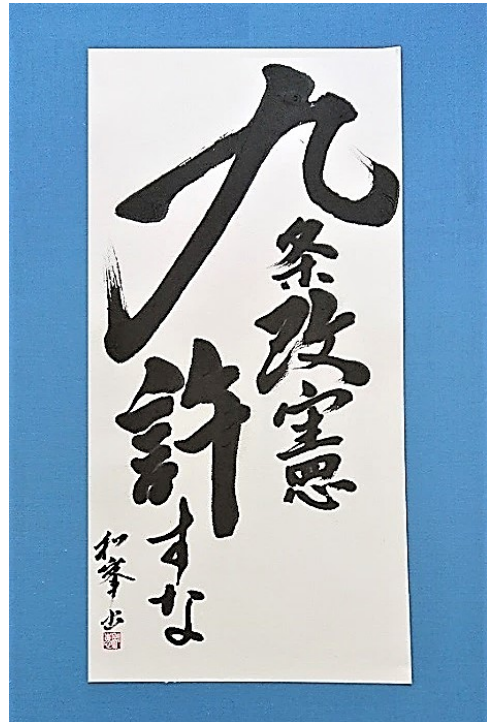 九条改憲
許すな
和峯書